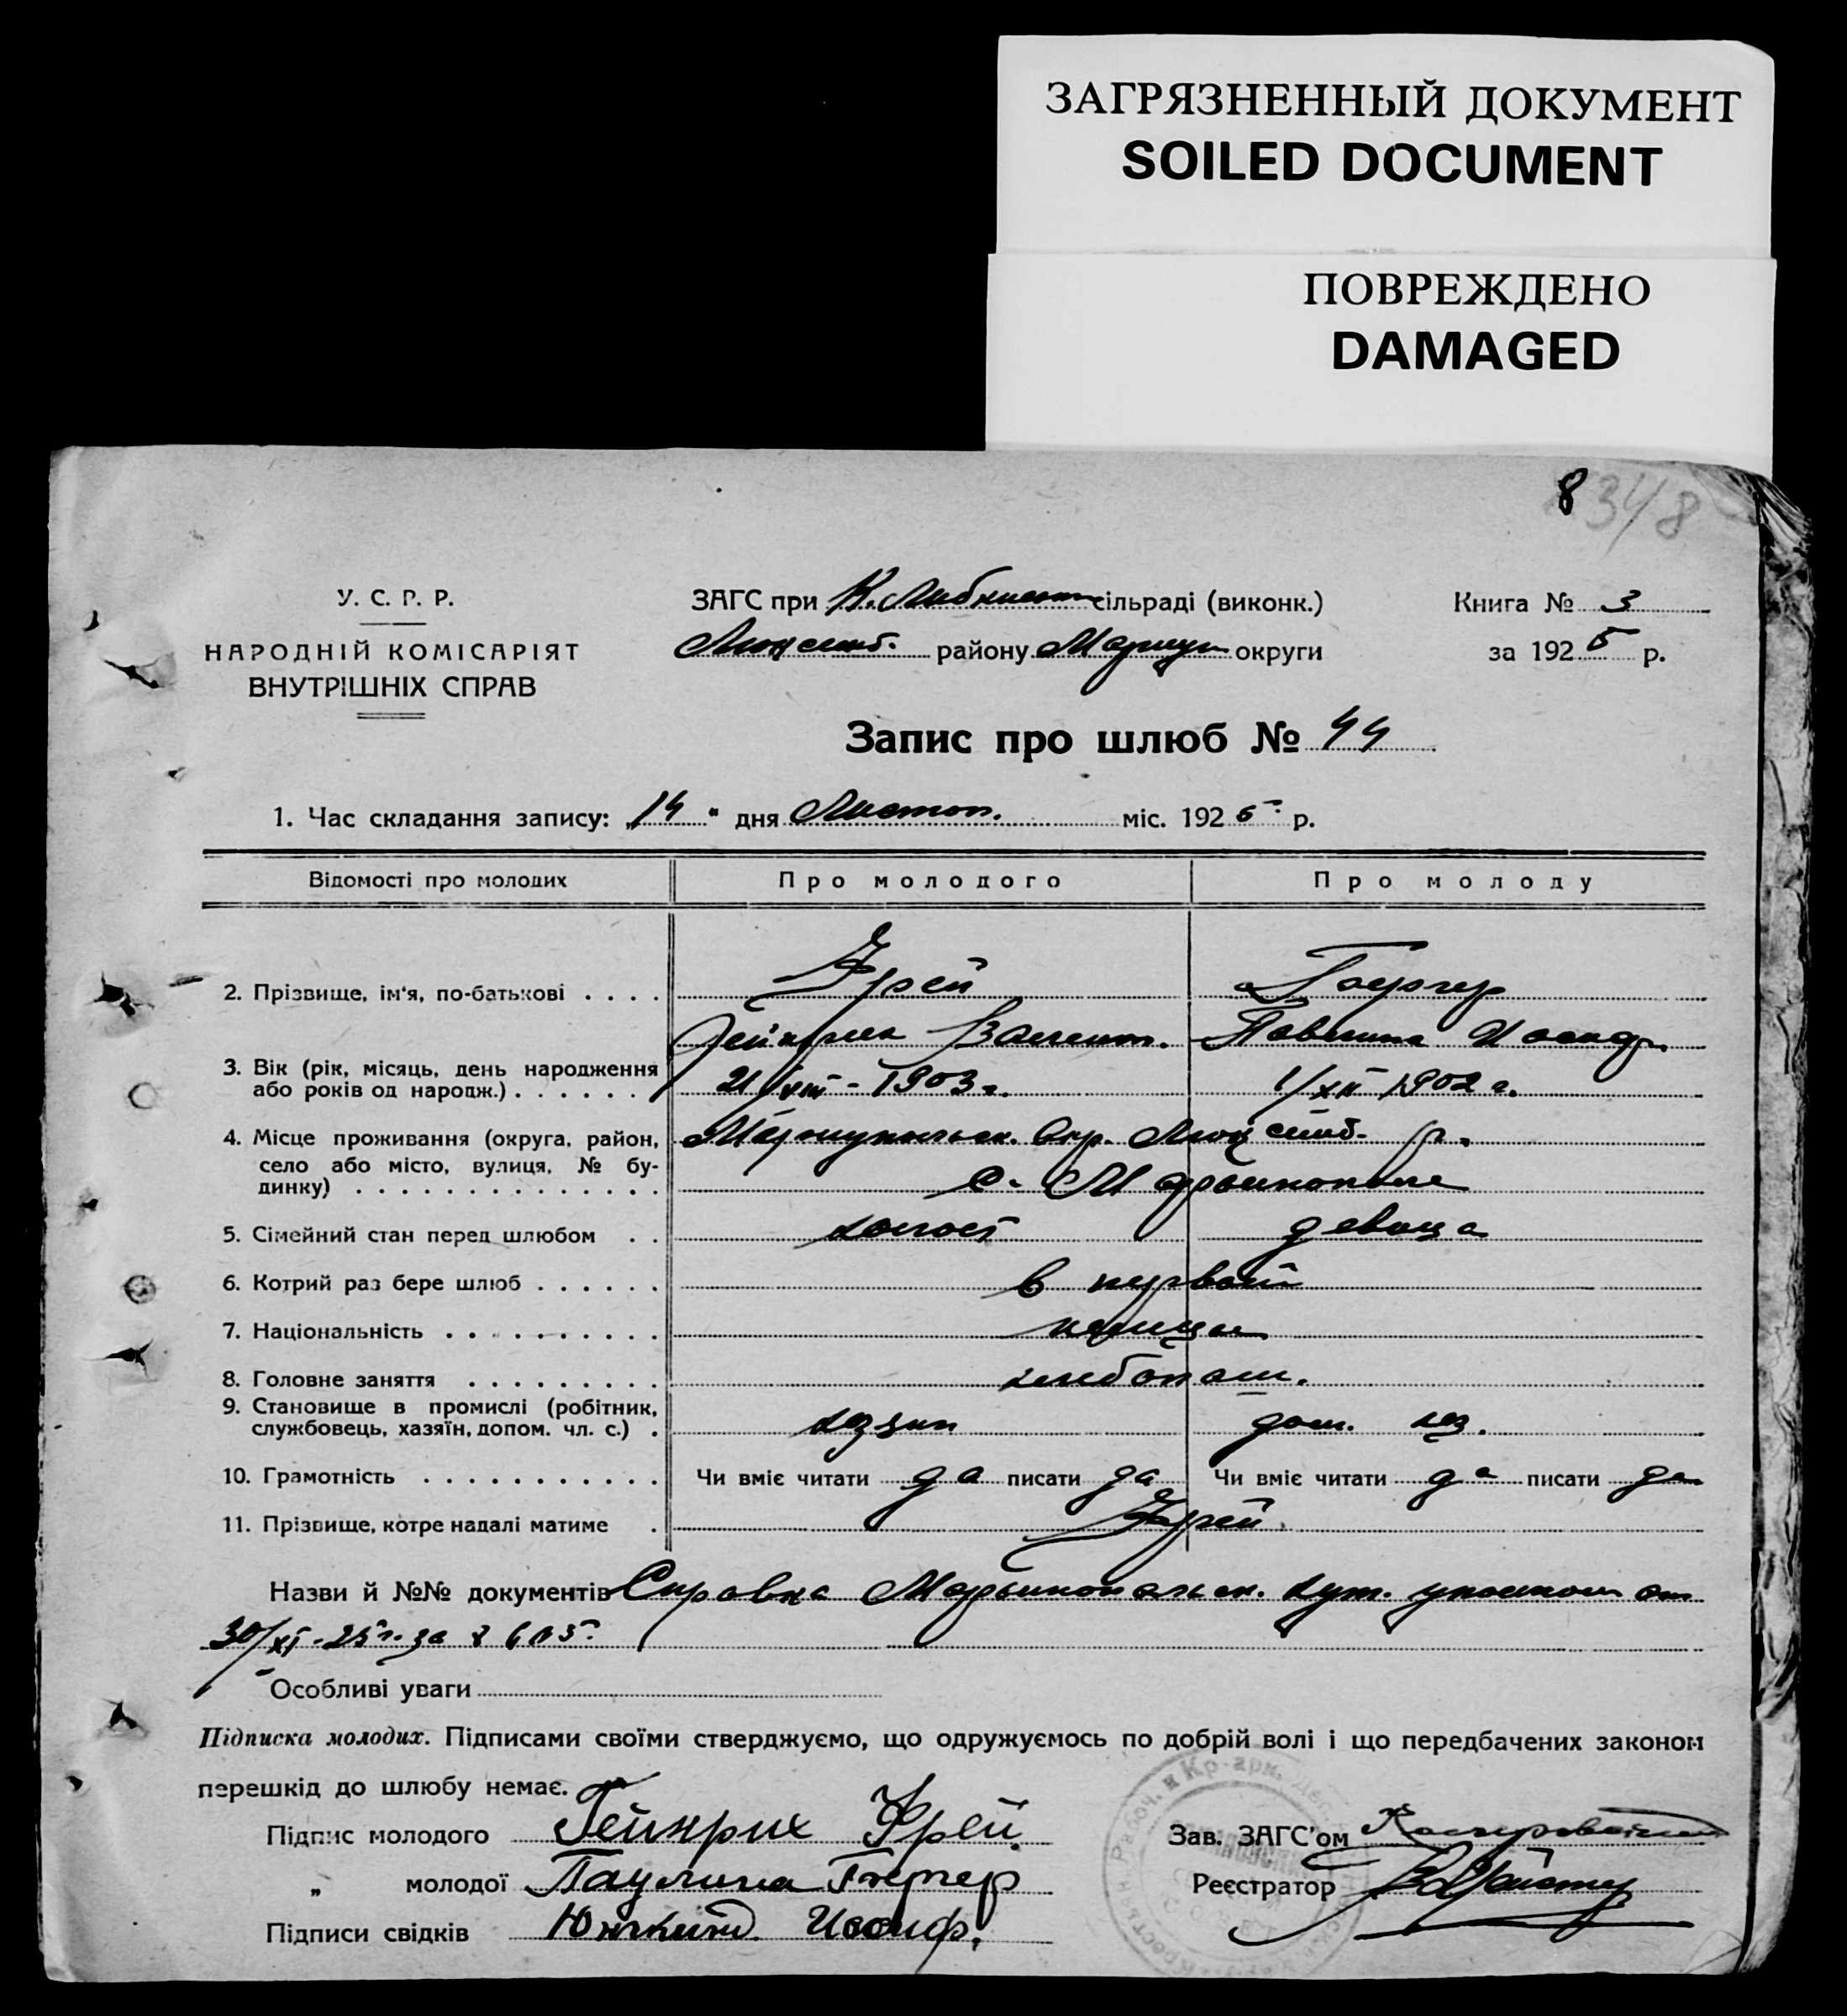 ЗАГРЯЗНЕННЫЙ ДОКУМЕНТ
SOILED DOCUMENT
ПОВРЕЖДЕНО
DAMAGED
8 348
У. С. Р. Р.
НАРОДНІЙ КОМІСАРІЯТ
ВНУТРІШНІХ СПРАВ
ЗАГС при К. Либкнехт сільраді (виконк.)
Люксемб. району Мариуп округи
Книга № 3
за 1925 р.
Запис про шлюб № 44
1. Час складання запису: „14" дня Листоп. міс. 1925 р.
Відомості про молодих
Про молодого
Про молоду
2. Прізвище, ім'я, по-батькові . . . .
Фрей
Гейнрих Валент.
Павлина Иосиф.
3. Вік (рік, місяць, день народження
або років од народж.) . . . . . .
21/VIII - 1903 г.
1/XII 1902 г.
4. Місце проживання (округа, район,
село або місто, вулиця, № бу-
динку) . . . . . . . . . . . . . .
Мариупольск. Окр. Люксемб. р.
с. Марьинополе
5. Сімейний стан перед шлюбом . .
холост
девица
6. Котрий раз бере шлюб . . . . . .
в первый
7. Національність . . . . . . . . . .
немцы
8. Головне заняття . . . . . . . . .
хлебопаш.
9. Становище в промислі (робітник,
службовець, хазяїн, допом. чл. с.) .
хозяин
дом. хоз.
10. Грамотність . . . . . . . . . . .
Чи вміє читати да писати да
Чи вміє читати да писати да
11. Прізвище, котре надалі матиме .
Фрей
Назви й №№ документів Справка Марьинопольск. хут. от
30/XI - 25 г. за
Особливі уваги
Підписка молодих. Підписами своїми стверджуємо, що одружуємось по добрій волі і що передбачених законом
перешкід до шлюбу немає.
Підпис молодого Гейнрих Фрей.
„ молодої Паулина Гергер
Підписи свідків Иосиф.
Зав. ЗАГС'ом
Реєстратор